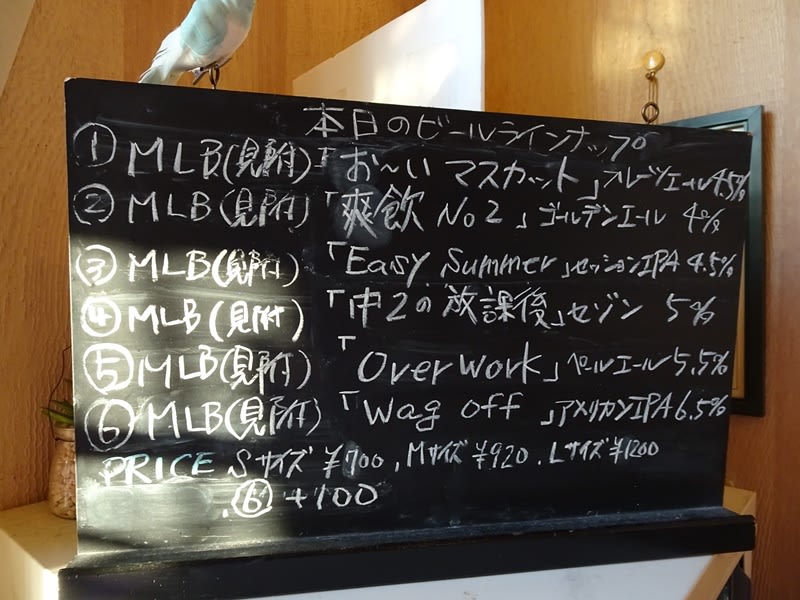 本日のビールラインナップ
① MLB(見附)「お〜いマスカット」フルーツエール4.5%
② MLB(見附)「爽飲 No2」ゴールデンエール 4%
③ MLB(見附)「Easy Summer」セッションIPA 4.5%
④ MLB(見附)「中2の放課後」セゾン 5%
⑤ MLB(見附)「Over work」ペールエール5.5%
⑥ MLB(見附)「Wag off」アメリカンIPA6.5%
PRICE Sサイズ ¥700, Mサイズ ¥920. Lサイズ ¥1200
.⑥ +100